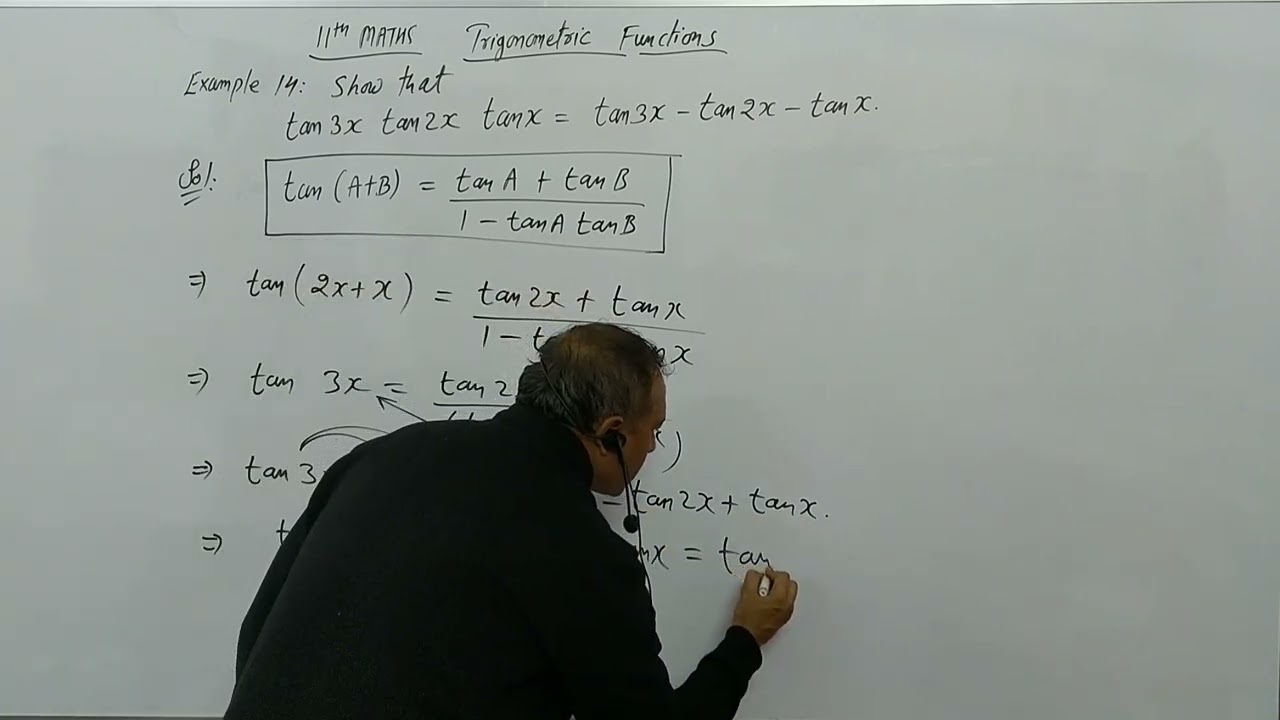 11th MATHS Trigonometric Functions
Example 14: Show that
tan3x tan2x tanx = tan3x - tan2x - tanx.
Sol.
tan(A+B) = tanA + tanB
1 - tanA tanB
⇒ tan(2x+x) = tan2x + tanx
1 - t x
⇒ tan 3x = tan2
)
⇒ tan3
= tan2x + tanx.
⇒ t nx = tan